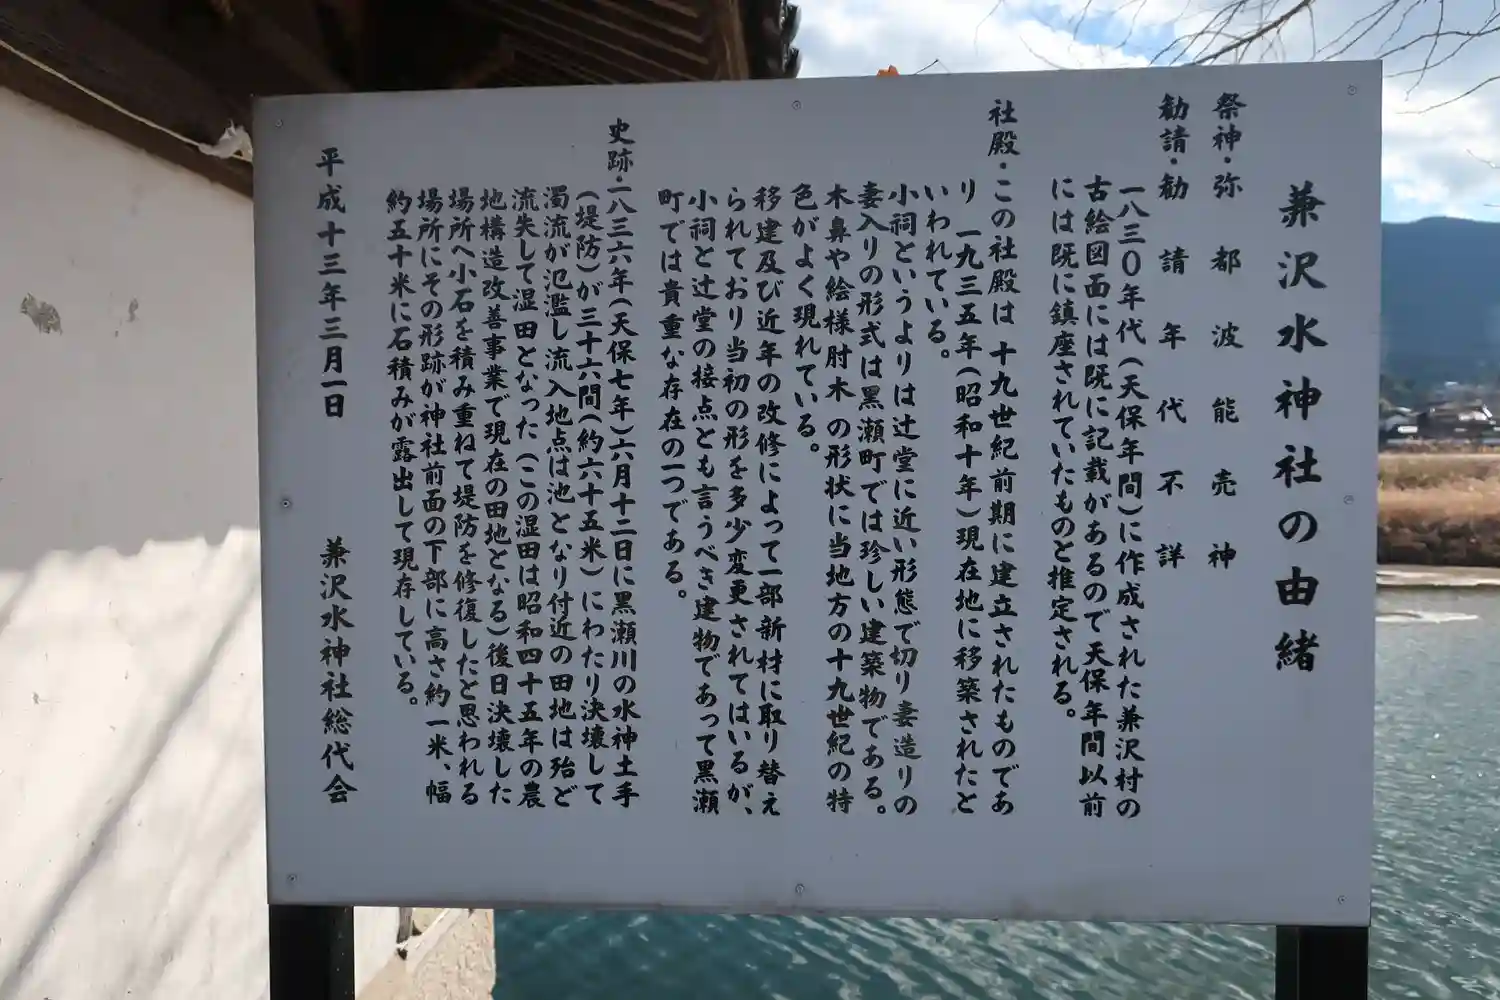 兼沢水神社の由緒
祭神・弥都波能売神
勧請・勧請年代不詳
一八三〇年代(天保年間)に作成された兼沢村の
古絵図面には既に記載があるので天保年間以前
には既に鎮座されていたものと推定される。
社殿・この社殿は十九世紀前期に建立されたものであ
り一九三五年(昭和十年)現在地に移築されたと
いわれている。
小祠というよりは辻堂に近い形態で切り妻造りの
妻入りの形式は黒瀬町では珍しい建築物である。
木鼻や絵様肘木の形状に当地方の十九世紀の特
色がよく現れている。
移建及び近年の改修によって一部新材に取り替え
られており当初の形を多少変更されてはいるが、
小祠と辻堂の接点とも言うべき建物であって黒瀬
町では貴重な存在の一つである。
史跡・一八三六年(天保七年)六月十二日に黒瀬川の水神土手
(堤防)が三十六間(約六十五米)にわたり決壊して
濁流が氾濫し流入地点は池となり付近の田地は殆ど
流失して湿田となった(この湿田は昭和四十五年の農
地構造改善事業で現在の田地となる)後日決壊した
場所へ小石を積み重ねて堤防を修復したと思われる
場所にその形跡が神社前面の下部に高さ約一米、幅
約五十米に石積みが露出して現存している。
平成十三年三月一日　兼沢水神社総代会